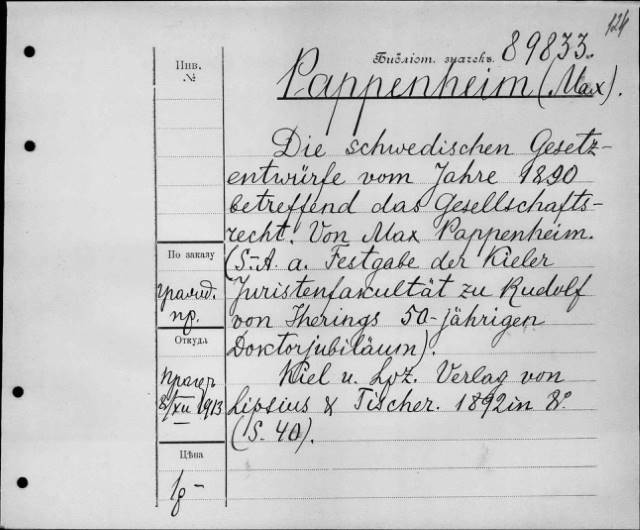 124
Библіот. значекъ 89833.
Инв.
№
Pappenheim (Max).
Die schwedischen Gesetz-
entwürfe vom Jahre 1890
betreffend das Gesellschafts-
recht. Von Max Pappenheim.
(S.-A. a. Festgabe der Kieler
Juristenfakultät zu Rudolf
von Iherings 50-jährigen
Doktorjubiläum).
Kiel u. Lpz. Verlag von
Lipsius & Tischer. 1892 in 8°.
(S. 40).
По заказу
гражд.
пр.
Откуда
Прагеръ
8/XII 1913
Цѣна